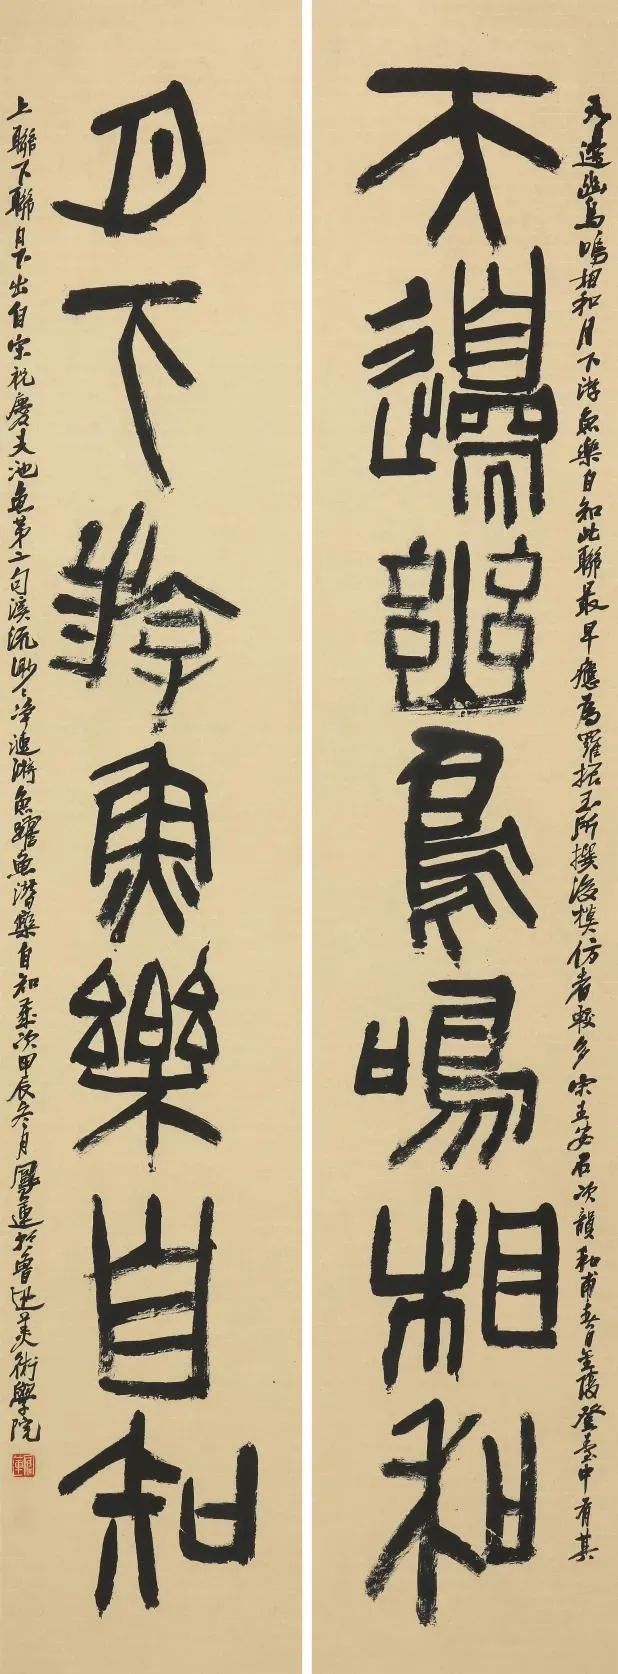 天邊幽鳥鳴相和
月下游魚樂自知
天邊幽鳥鳴相和月下游魚樂自知此聯最早應為羅振玉所撰後模仿者較多宋王安石次韻和甫春日金陵登臺中有其
上聯下聯月下出自宋祝慶夫池魚第二句溪流渺〻淨漣漪魚躍魚潛樂自知歲次甲辰冬月於魯迅美術學院